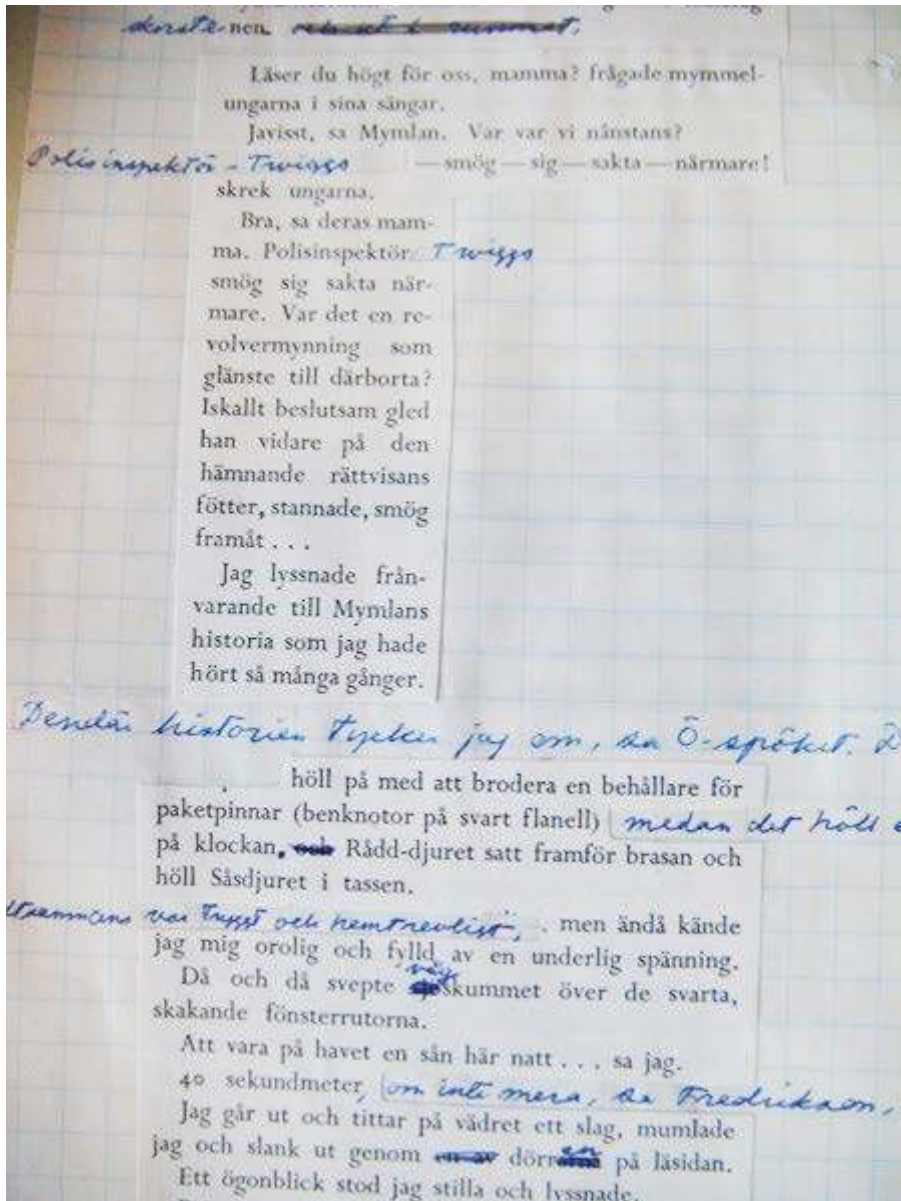 skorste-nen.
Läser du högt för oss, mamma? frågade mymmel-
ungarna i sina sängar.
Javisst, sa Mymlan. Var var vi nånstans?
Polisinspektör - Twiggs — smög — sig — sakta — närmare!
skrek ungarna.
Bra, sa deras mam-
ma. Polisinspektör Twiggs
smög sig sakta när-
mare. Var det en re-
volvermynning som
glänste till därborta?
Iskallt beslutsam gled
han vidare på den
hämnande rättvisans
fötter, stannade, smög
framåt . . .
Jag lyssnade från-
varande till Mymlans
historia som jag hade
hört så många gånger.
Dendär historien tycker jag om, sa Ö-spöket. D
höll på med att brodera en behållare för
paketpinnar (benknotor på svart flanell) medan det höll
på klockan. Rådd-djuret satt framför brasan och
höll Såsdjuret i tassen.
var tryggt och hemtrevligt, men ändå kände
jag mig orolig och fylld av en underlig spänning.
Då och då svepte vågskummet över de svarta,
skakande fönsterrutorna.
Att vara på havet en sån här natt . . . sa jag.
40 sekundmeter, om inte mera, sa Fredrikson.
Jag går ut och tittar på vädret ett slag, mumlade
jag och slank ut genom dörren på läsidan.
Ett ögonblick stod jag stilla och lyssnade.